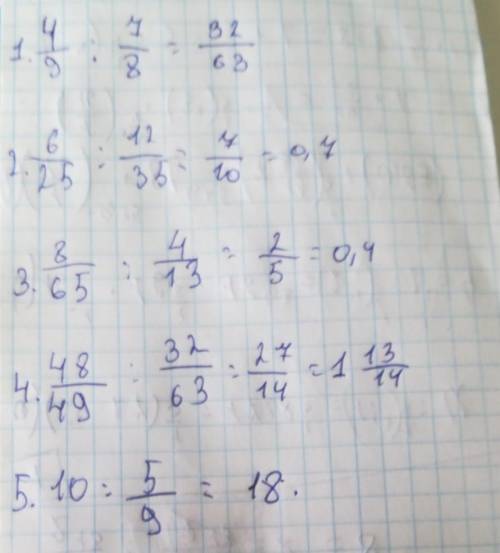 1. 4/9 : 7/8 = 32/63
2. 6/25 : 12/35 = 7/10 = 0,7
3. 8/65 : 4/13 = 2/5 = 0,4
4. 48/49 : 32/63 = 27/14 = 1 13/14
5. 10 : 5/9 = 18.